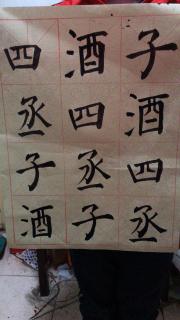 子酒四丞
酒四丞子
四丞子酒